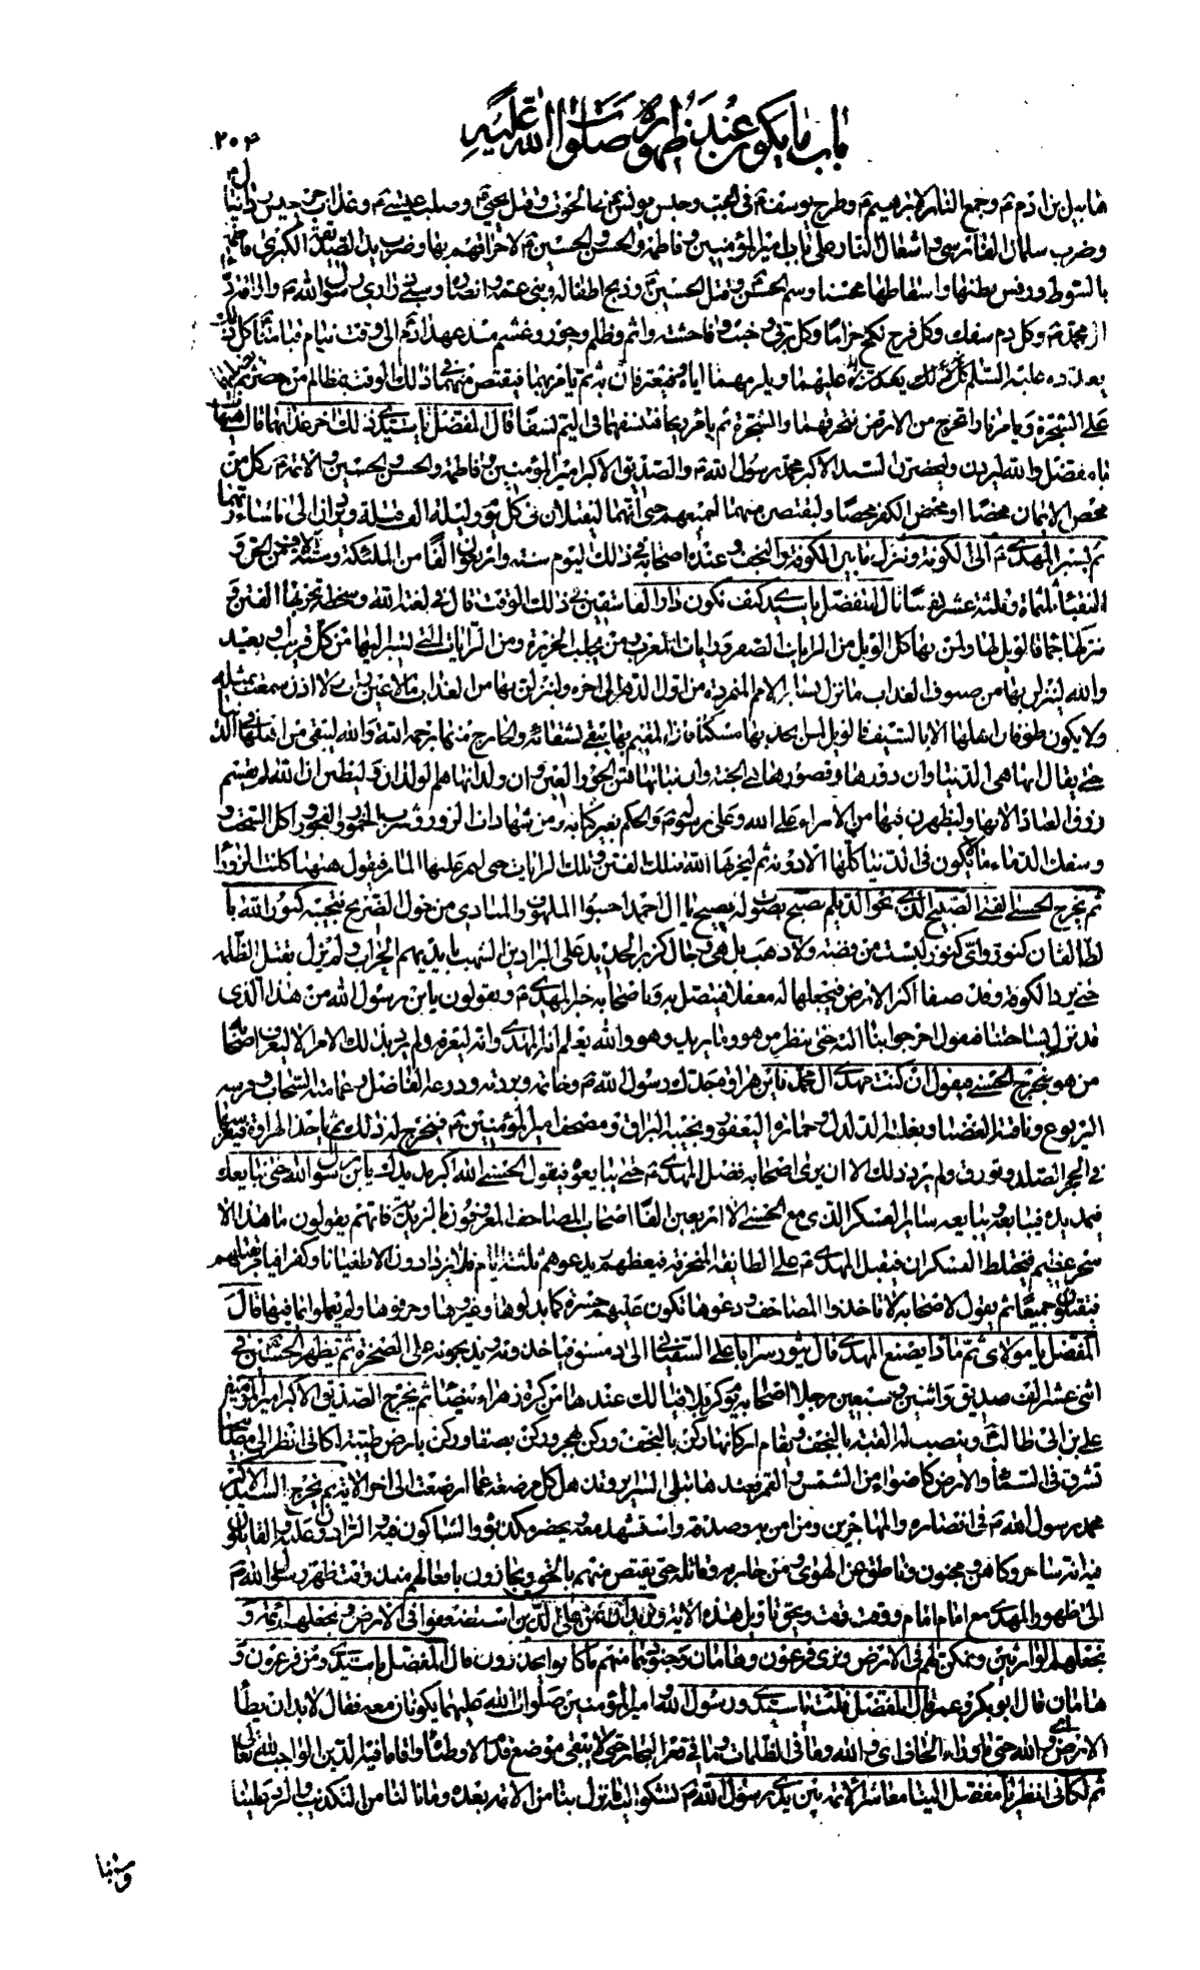 باب ما يكون عند ظهوره صلوات الله عليه
٢٠٤
هابيل بن ادم ع وجمع النار لابرهيم ع وطرح يوسف ع في الجب وحبس يونس ع في الحوت وقتل يحيى ع وصلب عيسى ع وعذاب جرجيس ودانيال ع
وضرب سلمان الفارسي واشعال النار على باب امير المؤمنين وفاطمة والحسن والحسين ع لاحراقهم بها وضرب يد الصديقة الكبرى فاطمة
بالسوط ورفس بطنها واسقاطها محسنا وسم الحسن ع وقتل الحسين ع وذبح اطفاله وبني عمه وانصاره وسبي ذراري رسول الله ص واراقة دماء
ال محمد ص وكل دم سفك وكل فرج نكح حراما وكل رين وخبث وفاحشة واثم وظلم وجور وغشم منذ عهد ادم ع الى وقت قيام قائمنا كل ذلك
يعدده عليه السلم عليهما ويلزمهما اياه فيعترفان به ثم يامر بهما فيقتص منهما في ذلك الوقت بمظالم من حضر ثم يصلبهما
على الشجرة ويامر نارا تخرج من الارض فتحرقهما والشجرة ثم يامر ريحا فتنسفهما في اليم نسفا قال المفضل يا سيدي ذلك اخر عذابهما قال هيهات
يا مفضل والله ليردن وليحضرن السيد الاكبر محمد رسول الله ص والصديق الاكبر امير المؤمنين وفاطمة والحسن والحسين والائمة ع وكل من
محض الايمان محضا او محض الكفر محضا وليقتصن منهما لجميعهم حتى انهما ليقتلان في كل يوم وليلة الف قتلة ويردان الى ما شاء ربهما
ثم يسير المهدي ع الى الكوفة وينزل ما بين الكوفة والنجف وعنده اصحابه في ذلك اليوم ستة واربعون الفا من الملئكة وستة الاف من الجن و
النقباء ثلثمائة وثلثة عشر نفسا قال المفضل يا سيدي كيف تكون دار الفاسقين في ذلك الوقت قال في لعنة الله وسخطه تخربها الفتن و
تتركها جما فالويل لها ولمن بها كل الويل من الرايات الصفر ورايات المغرب ومن يجلب الجزيرة ومن الرايات التي تسير اليها من كل قريب او بعيد
والله لينزلن بها من صنوف العذاب ما نزل بسائر الامم المتمردة من اول الدهر الى اخره ولينزلن بها من العذاب ما لا عين رات ولا اذن سمعت بمثله
ولا يكون طوفان اهلها الا بالسيف فالويل لمن اتخذ بها مسكنا فان المقيم بها يبقى لشقائه والخارج منها برحمة الله والله ليبقى من اهلها في الدنيا
حتى يقال انها هي الدنيا وان دورها وقصورها هي الجنة وان بناتها هن الحور العين وان ولدانها هم الولدان وليظنن ان الله لم يقسم
رزق العباد الا بها وليظهرن فيها من الافتراء على الله وعلى رسوله ص والحكم بغير كتابه ومن شهادات الزور وشرب الخمور والفجور واكل السحت و
وسفك الدماء ما لا يكون في الدنيا كلها الا دونه ثم ليخربها الله بتلك الفتن وتلك الرايات حتى ليمر عليها المار فيقول ههنا كانت الزوراء
ثم يخرج الحسني الفتى الصبيح الذي نحو الديلم يصيح بصوت له فصيح يا ال احمد اجيبوا الملهوف والمنادي من حول الضريح فتجيبه كنوز الله با
لطالقان كنوز واي كنوز ليست من فضة ولا ذهب بل هي رجال كزبر الحديد على البراذين الشهب بايديهم الحراب ولم يزل يقتل الظلمة
حتى يرد الكوفة وقد صفا اكثر الارض فيجعلها له معقلا فيتصل به وباصحابه خبر المهدي ع ويقولون يا بن رسول الله من هذا الذي
قد نزل بساحتنا فيقول اخرجوا بنا اليه حتى ننظر من هو وما يريد وهو والله يعلم انه المهدي وانه ليعرفه ولم يرد بذلك الامر الا ليعرف اصحابه
من هو فيخرج الحسني فيقول ان كنت مهدي ال محمد فاين هراوة جدك رسول الله ص وخاتمه وبردته ودرعه الفاضل وعمامته السحاب وفرسه
اليربوع وناقته العضباء وبغلته الدلدل وحماره اليعفور ونجيبه البراق ومصحف امير المؤمنين ع فيخرج له ذلك ثم ياخذ الهراوة فيغرسها
في الحجر الصلد وتورق ولم يرد ذلك الا ان يري اصحابه فضل المهدي ع حتى يبايعوه فيقول الحسني الله اكبر مد يدك يا بن رسول الله حتى نبايعك
فيمد يده فيبايعه ويبايعه سائر العسكر الذي مع الحسني الا اربعين الفا اصحاب المصاحف المعروفون بالزيدية فانهم يقولون ما هذا الا
سحر عظيم فيختلط العسكران فيقبل المهدي ع على الطائفة المنحرفة فيعظهم ويدعوهم ثلثة ايام فلا يزدادون الا طغيانا وكفرا فيامر بقتلهم
فيقتلون جميعا ثم يقول لاصحابه لا تاخذوا المصاحف ودعوها تكون عليهم حسرة كما بدلوها وغيروها وحرفوها ولم يعملوا بما فيها قال
المفضل يا مولاي ثم ماذا يصنع المهدي قال يثور سرايا على السفياني الى دمشق فياخذونه ويذبحونه على الصخرة ثم يظهر الحسين ع في
اثنى عشر الف صديق واثنين وسبعين رجلا اصحابه يوم كربلا فيا لك عندها من كرة زهراء بيضاء ثم يخرج الصديق الاكبر امير المؤمنين
علي بن ابي طالب ع وينصب له القبة بالنجف ويقام اركانها ركن بالنجف وركن بهجر وركن بصفا وركن بارض طيبة لكاني انظر الى مصابيحها
تشرق في السماء والارض كاضواء من الشمس والقمر فعندها تبلى السرائر وتذهل كل مرضعة عما ارضعت الى اخر الاية ثم يخرج السيد الاكبر
محمد رسول الله ص في انصاره والمهاجرين ومن امن به وصدقه واستشهد معه ويحضر مكذبوه والشاكون فيه والرادون عليه والقائلون
فيه انه ساحر وكاهن ومجنون وناطق عن الهوى ومن حاربه وقاتله حتى يقتص منهم بالحق ويجازون بافعالهم منذ وقت ظهر رسول الله ص
الى ظهور المهدي مع امام امام ووقت وقت ويحق تاويل هذه الاية ونريد ان نمن على الذين استضعفوا في الارض ونجعلهم ائمة و
نجعلهم الوارثين ونمكن لهم في الارض ونري فرعون وهامان وجنودهما منهم ما كانوا يحذرون قال المفضل يا سيدي ومن فرعون و
هامان قال ابو بكر وعمر قال المفضل قلت يا سيدي ورسول الله وامير المؤمنين صلوات الله عليهما يكونان معه فقال لا بد ان يطآ
الارض اي والله حتى ما وراء الخاف اي والله وما في الظلمات وما في قعر البحار حتى لا يبقى موضع قدم الا وطئا واقاما فيه الدين الواجب لله تعالى
ثم لكاني انظر يا مفضل الينا معاشر الائمة بين يدي رسول الله ص نشكو اليه ما نزل بنا من الامة بعده وما نالنا من التكذيب والرد علينا
وسبينا